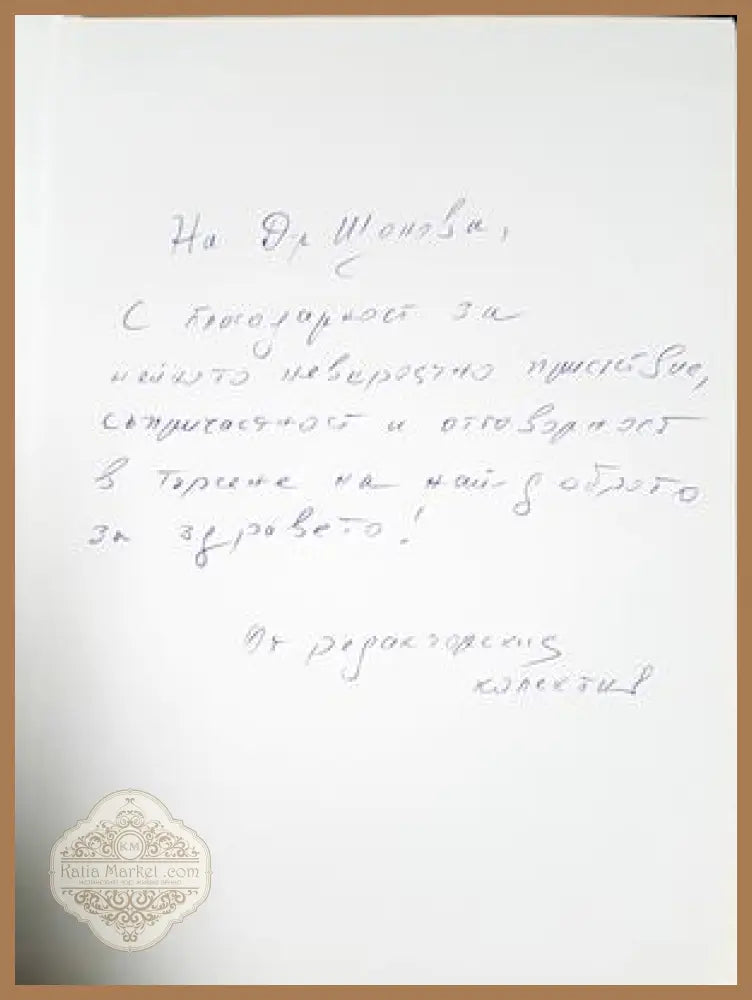 На Др Шонова,
С благодарност за
нейното невероятно присъствие,
съпричастност и отговорност
в търсене на най-доброто
за здравето!
От редакторския
колектив
KM
Katia Market .com